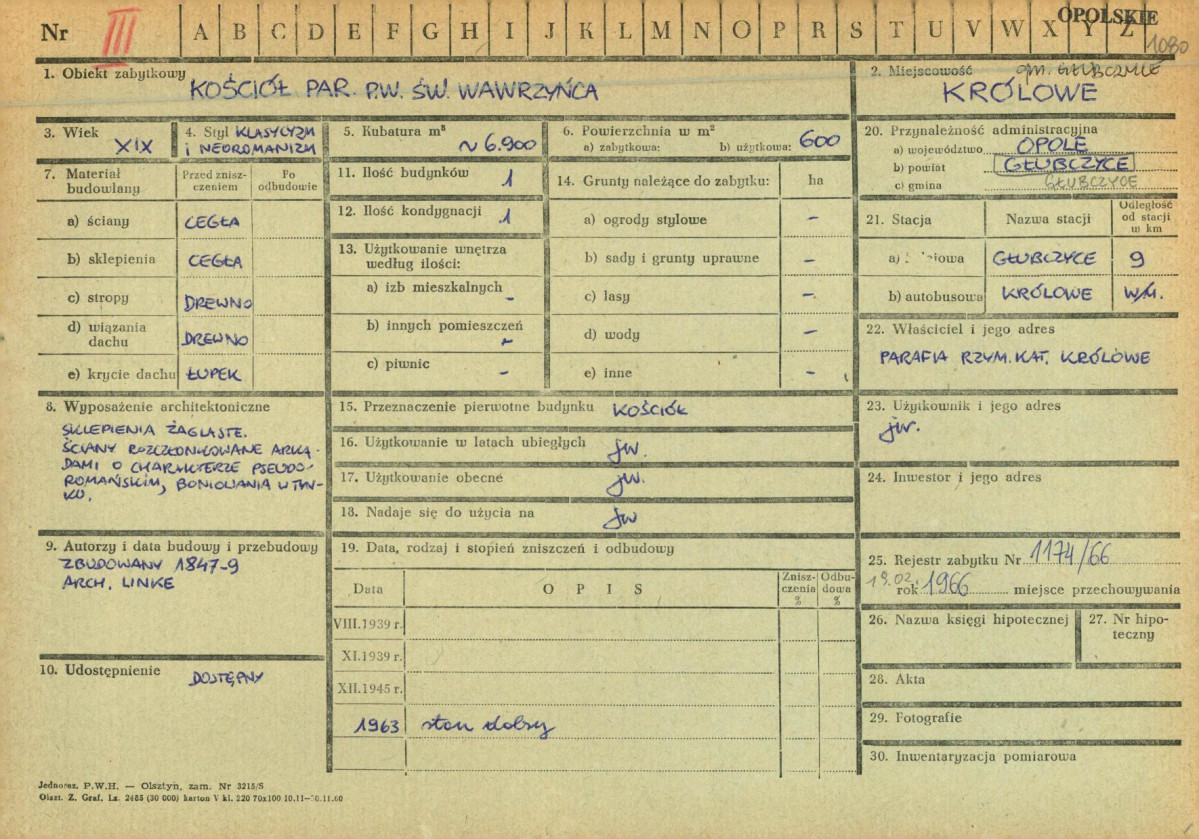 OPOLSKIE
Nr III A B C D E F G H I J K L M N O P R S T U V W X Y Z
1080
1. Obiekt zabytkowy KOŚCIÓŁ PAR. P.W. ŚW. WAWRZYŃCA
2. Miejscowość gm. GŁUBCZYCE
KRÓLOWE
3. Wiek XIX
4. Styl KLASYCYZM
I NEOROMANIZM
5. Kubatura m³ ~ 6.900
6. Powierzchnia w m²
a) zabytkowa: b) użytkowa: 600
20. Przynależność administracyjna
a) województwo OPOLE
b) powiat GŁUBCZYCE
c) gmina GŁUBCZYCE
7. Materiał budowlany
Przed zniszczeniem
Po odbudowie
a) ściany CEGŁA
b) sklepienia CEGŁA
c) stropy DREWNO
d) wiązania dachu DREWNO
e) krycie dachu ŁUPEK
11. Ilość budynków 1
12. Ilość kondygnacji 1
13. Użytkowanie wnętrza według ilości:
a) izb mieszkalnych -
b) innych pomieszczeń -
c) piwnic -
14. Grunty należące do zabytku: ha
a) ogrody stylowe -
b) sady i grunty uprawne -
c) lasy -
d) wody -
e) inne -
21. Stacja Nazwa stacji Odległość od stacji w km
a) GŁUBCZYCE 9
b) autobusowa KRÓLOWE W/M.
22. Właściciel i jego adres
PARAFIA RZYM. KAT. KRÓLOWE
8. Wyposażenie architektoniczne
SKLEPIENIA ŻAGLASTE.
ŚCIANY ROZCZŁONKOWANE ARKA-
DAMI O CHARAKTERZE PSEUDO-
ROMAŃSKIM, BONIOWANIA W TYN-
KU.
15. Przeznaczenie pierwotne budynku KOŚCIÓŁ
16. Użytkowanie w latach ubiegłych jw.
17. Użytkowanie obecne jw.
18. Nadaje się do użycia na jw
23. Użytkownik i jego adres
jw.
24. Inwestor i jego adres
9. Autorzy i data budowy i przebudowy
ZBUDOWANY 1847-9
ARCH. LINKE
19. Data, rodzaj i stopień zniszczeń i odbudowy
Data OPIS Zniszczenia % Odbudowa %
VIII.1939 r.
XI.1939 r.
XII.1945 r.
1963 stan dobry
25. Rejestr zabytku Nr 1174/66
19.02. rok 1966 miejsce przechowywania
26. Nazwa księgi hipotecznej
27. Nr hipoteczny
10. Udostępnienie DOSTĘPNY
28. Akta
29. Fotografie
30. Inwentaryzacja pomiarowa
Jednoraz. P.W.H. — Olsztyn, zam. Nr 3215/S
Olszt. Z. Graf. Lz. 2485 (30 000) karton V kl. 220 70x100 10.11—30.11.60